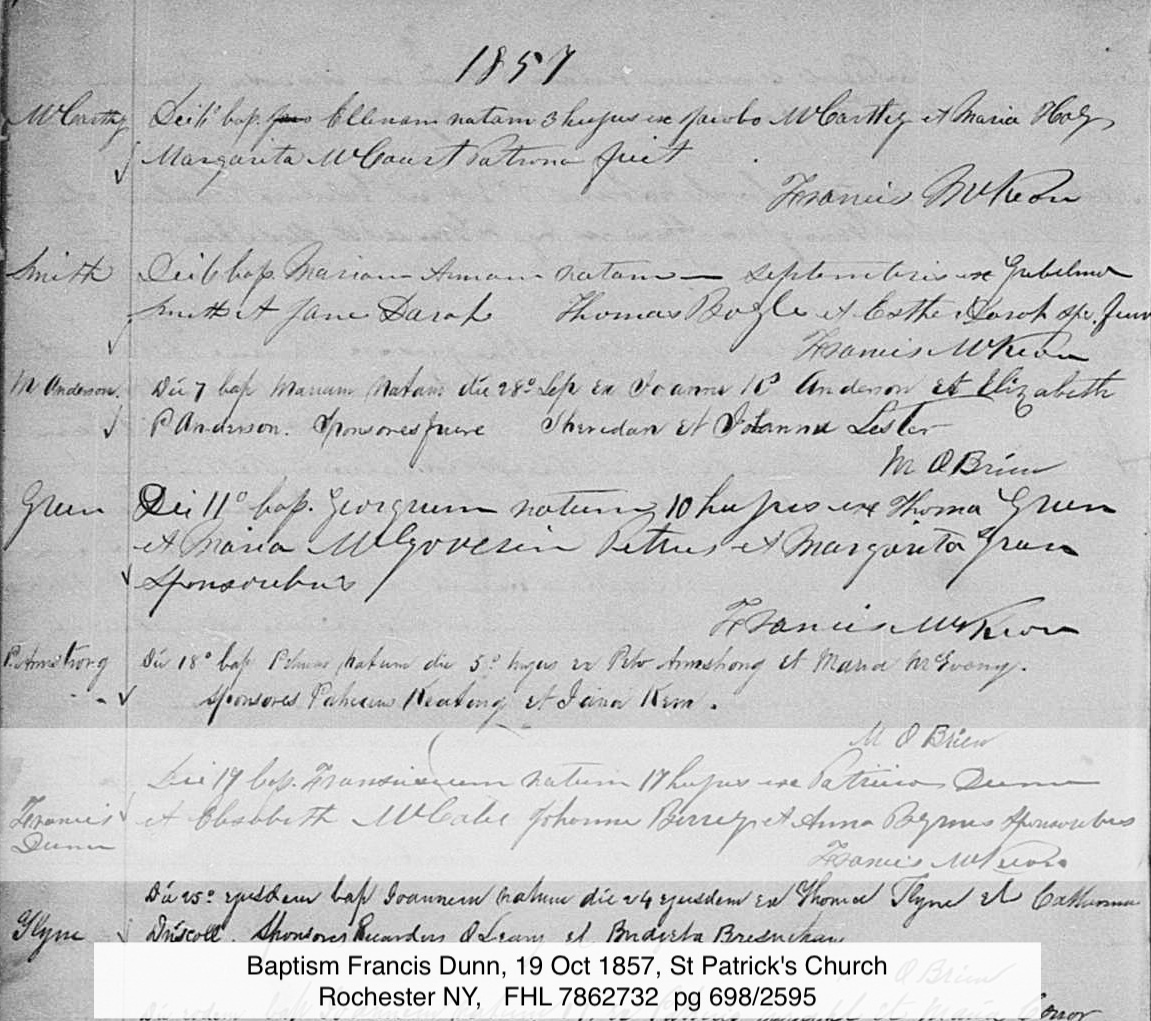 1857
McCarthy Die 6 bap. Ellenam natam 3 hujus ex Jacobo McCarthy et Maria
Margarita McCourt Patrona fuit
Francis McKeon
Smith Die 6 bap. Mariam Annam natam — Septembris ex
Smith et Jane Darah Thomas Bogle et Esther Darah
Francis McKeon
M Anderson. Die 7 bap Mariam Natam die 28º Sep ex Joanne Anderson et Elizabeth
P Anderson. Sponsores fuere Sheridan et Johanna Lester
M O Brien
Green Die 11º bap. Georgium natum 10 hujus ex Thoma Green
et Maria McGoverin Petrus et Margarita Green
Sponsoribus
Francis McKeon
P. Armstrong Die 18º bap Petrum Natum die 5º hujus ex Peto Armstrong et Maria McEvany.
Sponsores Patricius Keating et Jana Kern.
M O Brien
Die 19 bap. natum 17 hujus ex Patricio Dunn
Francis et Elisabeth McCabe Johanne Berrey et Anna Byrnes Sponsoribus
Dunn
Francis McKeon
Die 25º ejusdem bap Joannem natum die 24 ejusdem ex Thoma Flyne et Catherina
Flyne Driscoll. Sponsores O Leary et Bridieta Bresnehan
O Brien
Baptism Francis Dunn, 19 Oct 1857, St Patrick's Church
Rochester NY, FHL 7862732 pg 698/2595
et Maria Connor